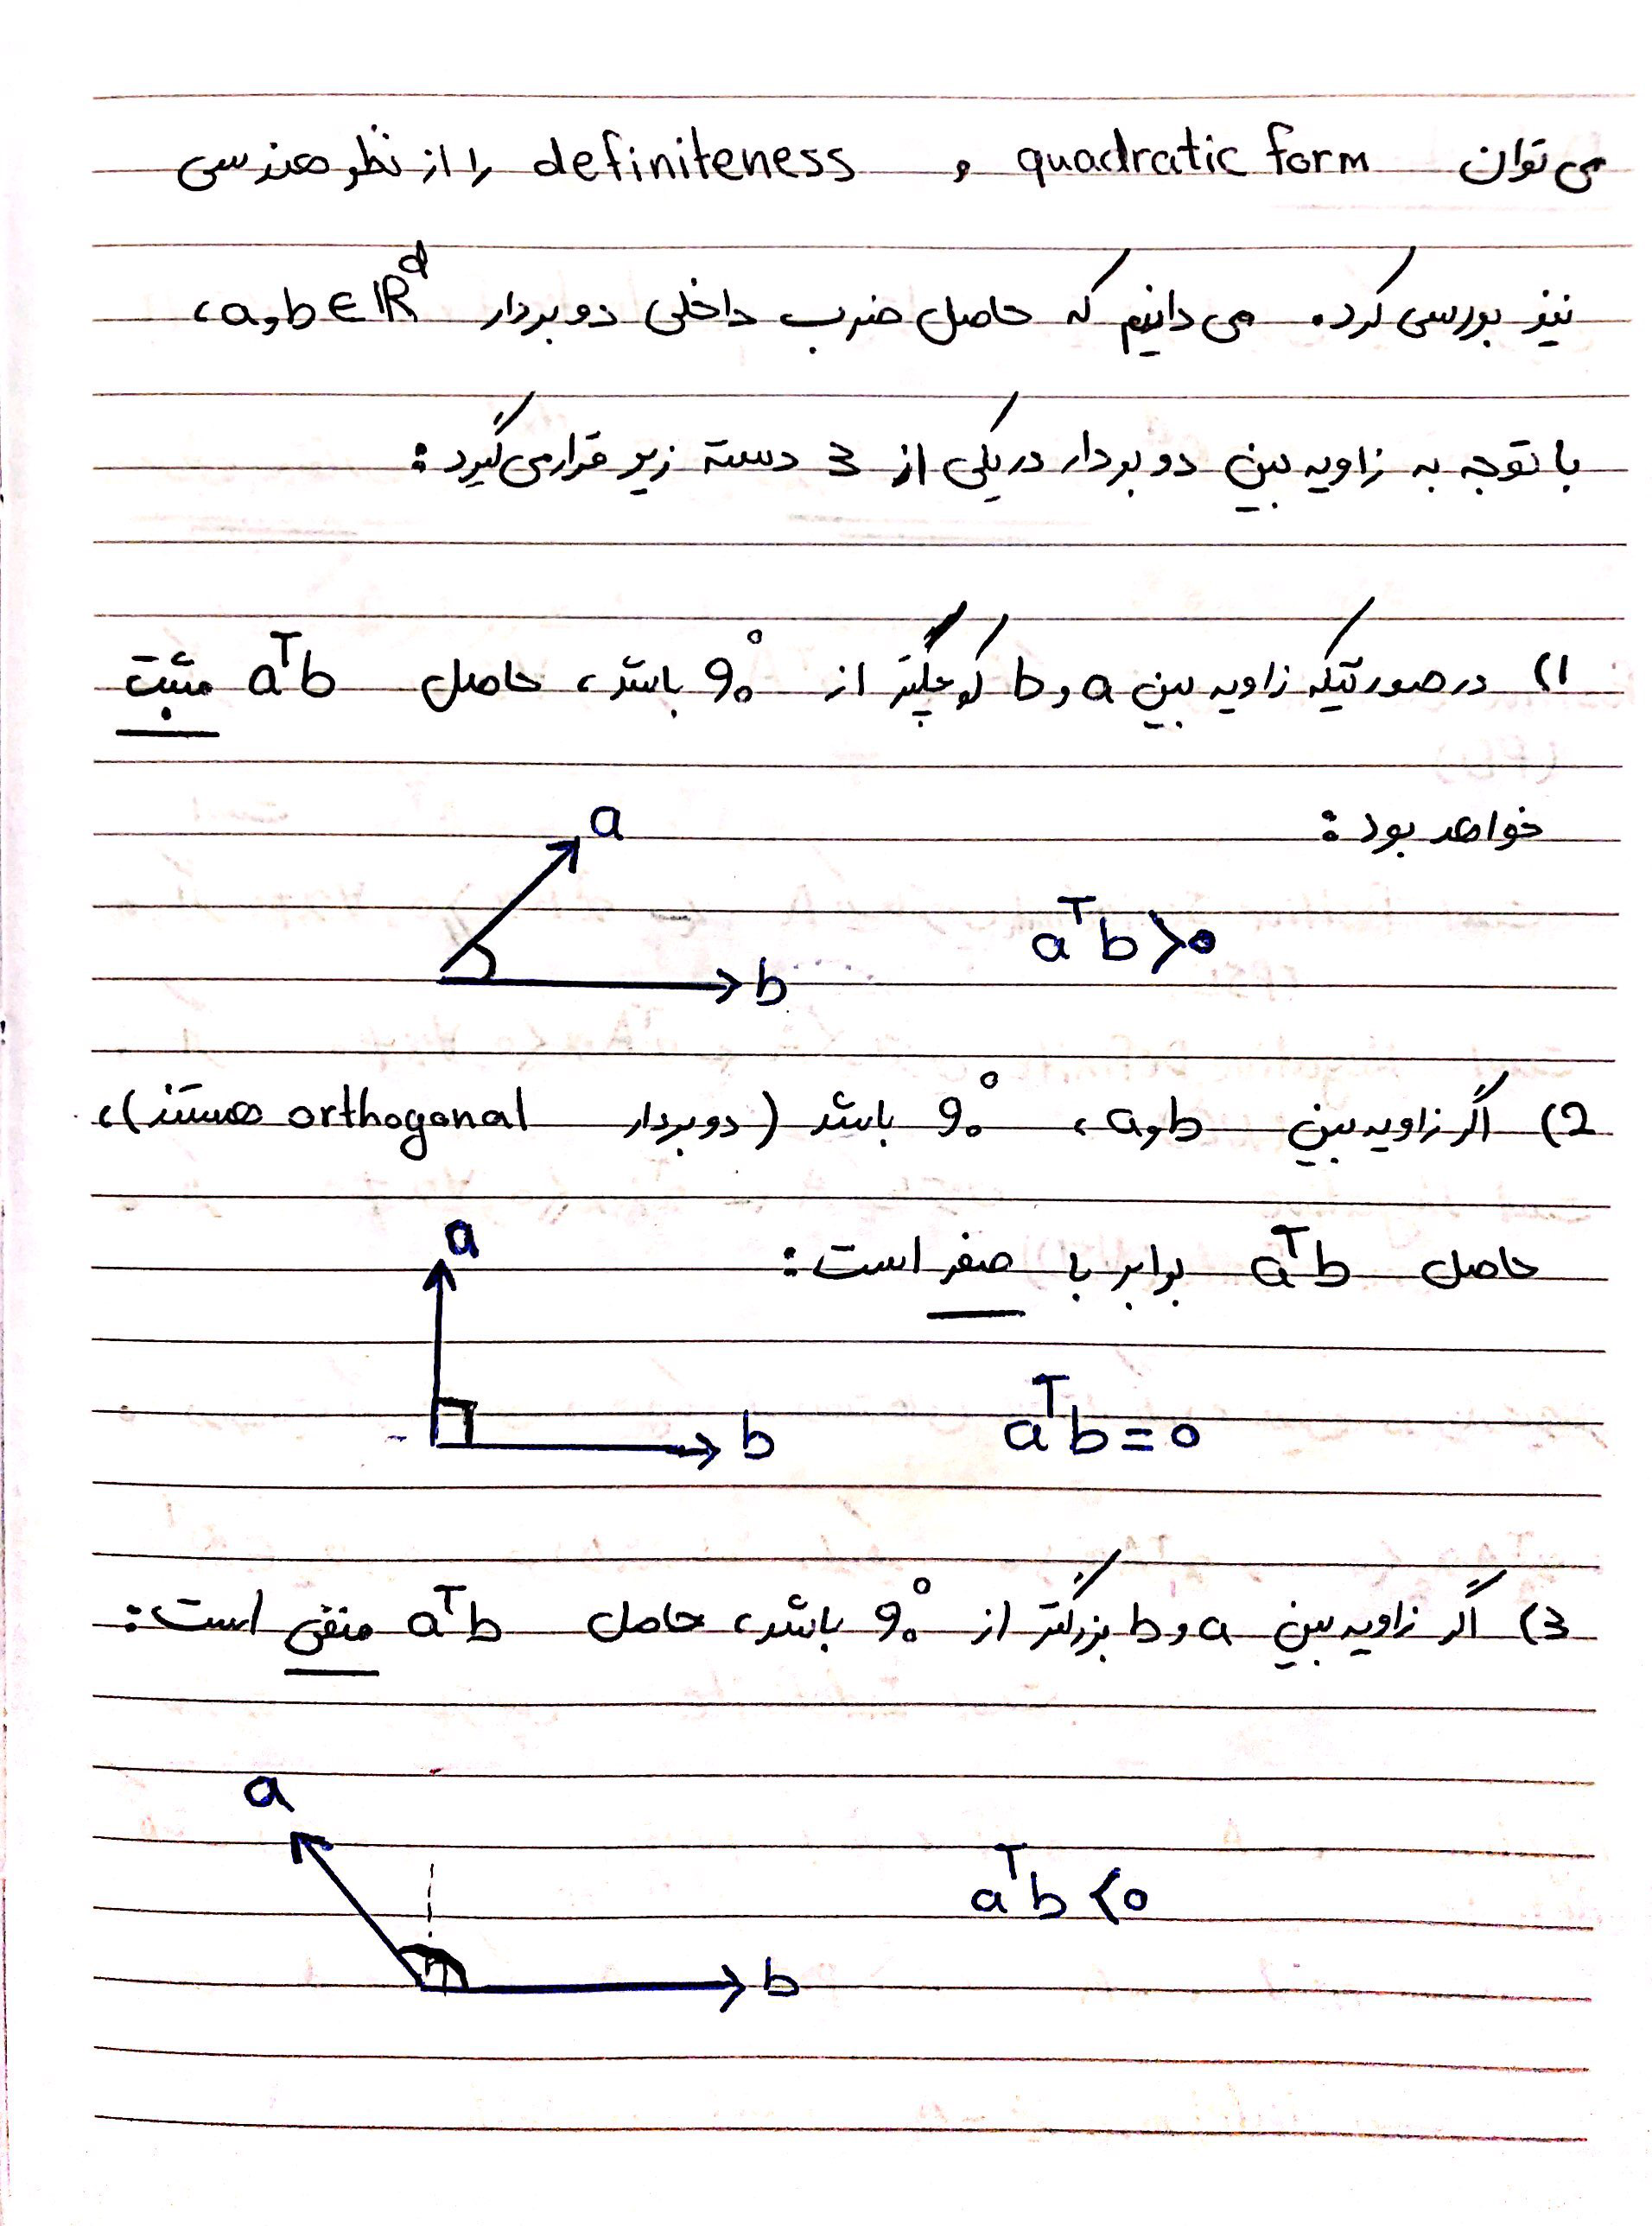 می توان quadratic form و definiteness را از نظر هندسی
نیز بررسی کرد. می دانیم که حاصل ضرب داخلی دو بردار a,b ∈ ℝᵈ ،
با توجه به زاویه بین دو بردار در یکی از 3 دسته زیر قرار می گیرد :
1) در صورتیکه زاویه بین a و b کوچکتر از 90° باشد ، حاصل aᵀb مثبت
خواهد بود :
a
aᵀb > 0
b
2) اگر زاویه بین a,b ، 90° باشد (دو بردار orthogonal هستند) ،
حاصل aᵀb برابر با صفر است :
a
aᵀb = 0
b
3) اگر زاویه بین a و b بزرگتر از 90° باشد ، حاصل aᵀb منفی است :
a
aᵀb < 0
b